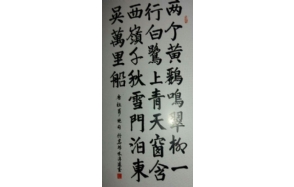 两个黄鸝鳴翠柳一
行白鷺上青天窗含
西嶺千秋雪門泊東
吴萬里船